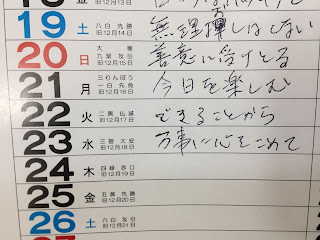 旧12月13日
19 土 八白 先勝
旧12月14日
無理押しはしない
20 日 大寒
九紫 友引
旧12月15日
善意に受けとる
21 月 三りんぼう
一白 先負
旧12月16日
今日を楽しむ
22 火 二黒 仏滅
旧12月17日
できることから
23 水 三碧 大安
旧12月18日
万事に心をこめて
24 木 四緑 赤口
旧12月19日
25 金 五黄 先勝
旧12月20日
26 土 六白 友引
旧12月21日